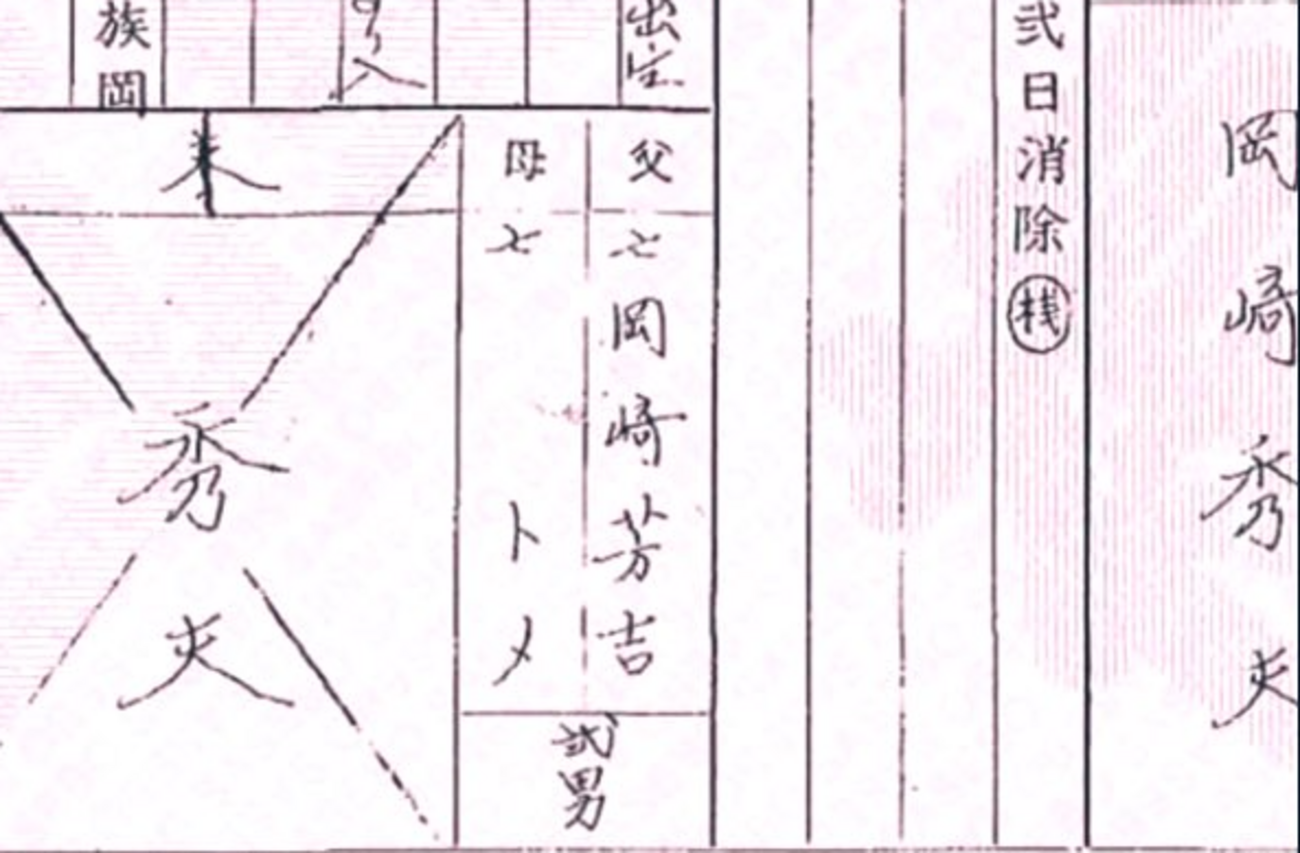 岡崎秀夫
弐日消除
父 亡 岡崎芳吉
母 亡 トメ
弐男
夫
秀夫
族岡